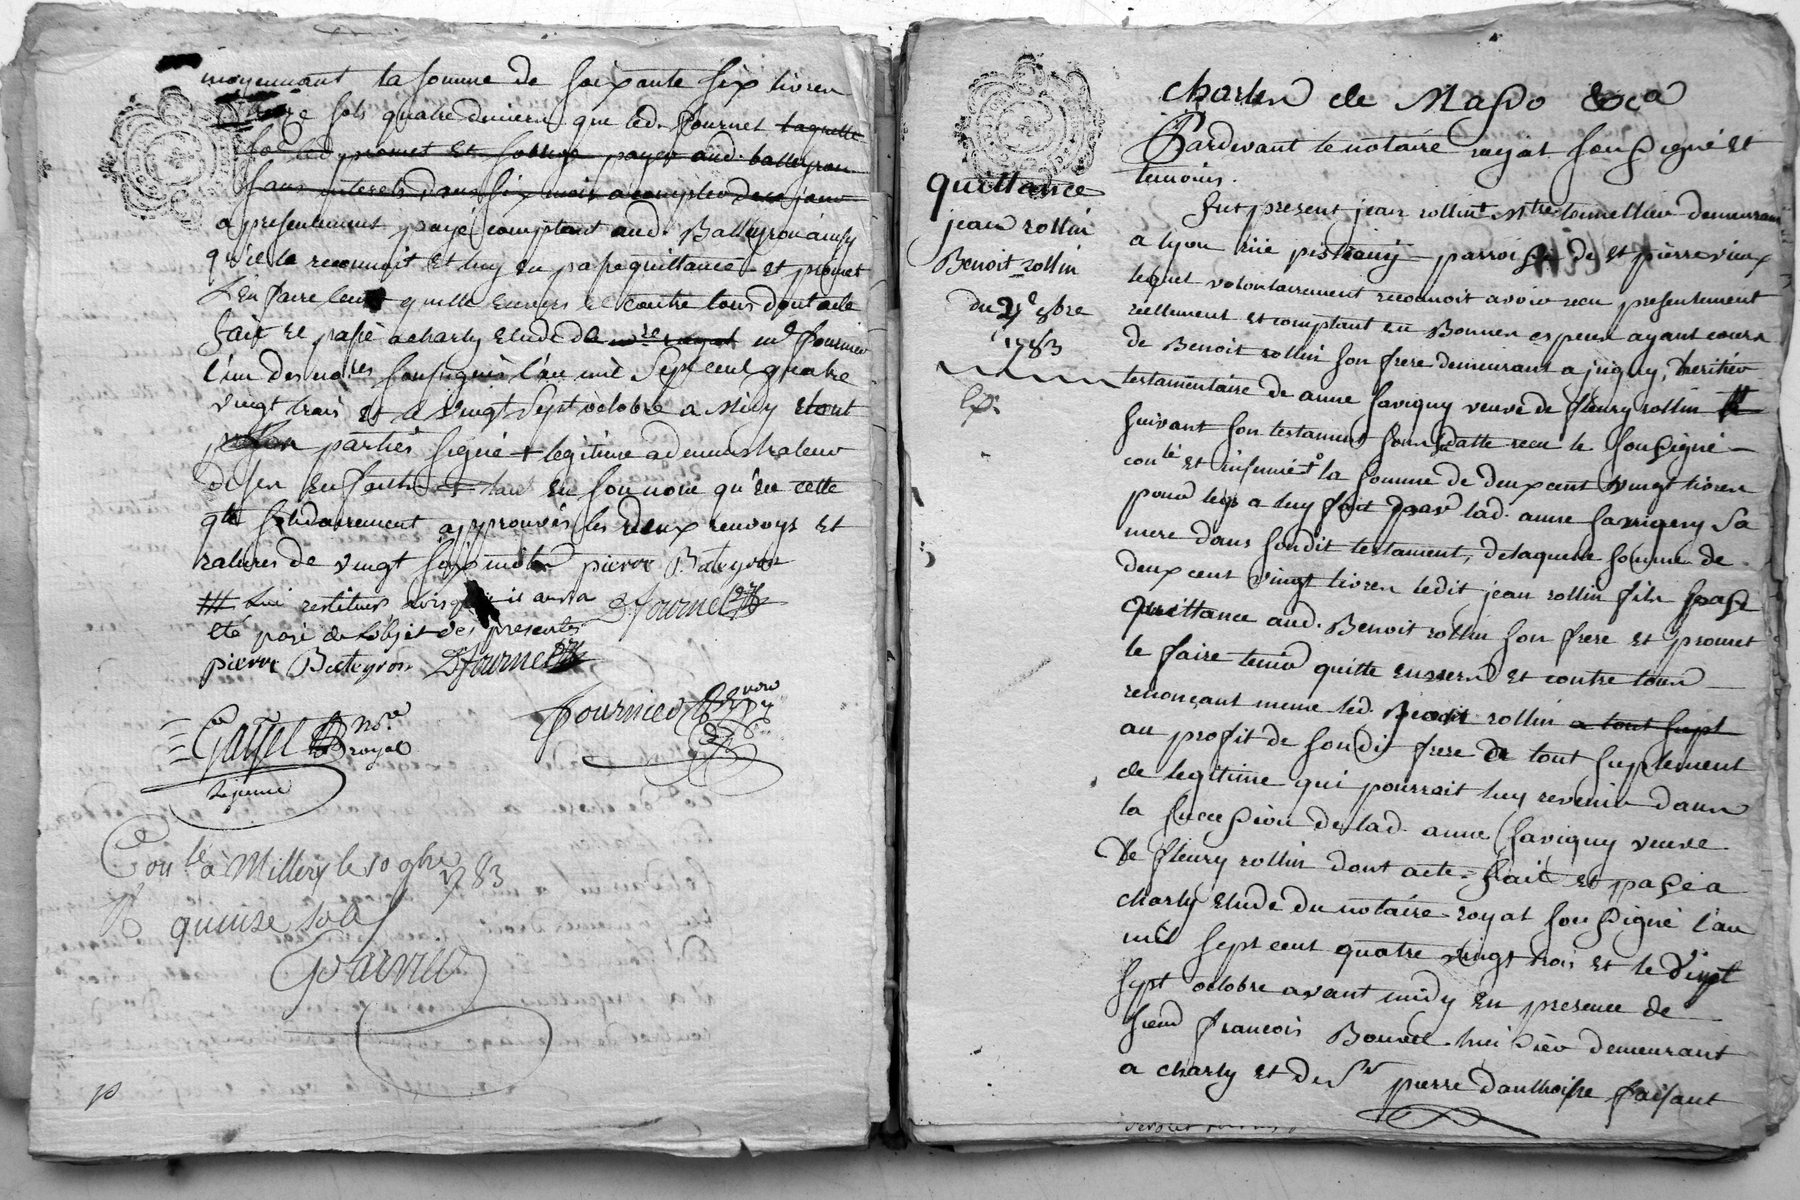 moyennant la somme de soixante six livres
treize sols quatre deniers que led. fournet laquelle
so. led. promet et soblige payer aud. balleyron
sans interets dans six mois a compter de ce jour
a presentement payé comptant aud. Balleyron ainsy
qu'il le reconnoit et luy en passe quittance et promet
l'en faire tenir quitte envers et contre tous dont acte
fait et passé a charly etude de me royal md. fournier
l'un des no.res soussignés l'an mil sept cent quatre
vingt trois et le vingt sept octobre a midy et ont
parties signé + legitime administrateur
de ses enfants + tant en son nom qu'en cette
q.te solidairement approuvés les deux renvoys et
ratures de vingt six mots pierre Bateyron
lui restitués lors il aura DFournel
eté payé de l'objet des presentes
pierre Bateyron DFournel
Gayet no.re royal
fournier
Con.lé à Millery le 10 9bre 1783
R quinze sols
charles de Masso &ca
Pardevant le notaire royal soussigné et
temoins.
quittance
jean rollin
Benoit rollin
du 27e 8bre
1783
Ex.
fut present jean rollin + m.tre tonnellier demeurant
a lyon rüe pistrary parroisse de st pierre vieux
lequel volontairement reconnoit avoir recu presentement
reellement et comptant en Bonnes especes ayant cours
de Benoit rollin son frere demeurant a jrigny, heritier
testamentaire de anne savigny veuve de fleury rollin
suivant son testament sous sa datte recu le soussigné
con.lé et insinué + la somme de deux cent vingt livres
pour legs a luy fait par lad. anne savigny sa
mere dans sondit testament, de laquelle somme de
deux cent vingt livres ledit jean rollin fils passe
quittance aud. Benoit rollin son frere et promet
le faire tenir quitte envers et contre tous
renonçant meme led. Benoit rollin a tout supl
au profit de sondit frere de tout suplement
de legitime qui pourroit luy revenir dans
la succession de lad. anne savigny veuve
de fleury rollin dont acte. fait et passé a
charly etude du notaire royal soussigné l'an
mil sept cent quatre vingt trois et le vingt
sept octobre avant midy en presence de
sieur francois Bonnet huissier demeurant
a charly et de sr. pierre danthoisse faisant